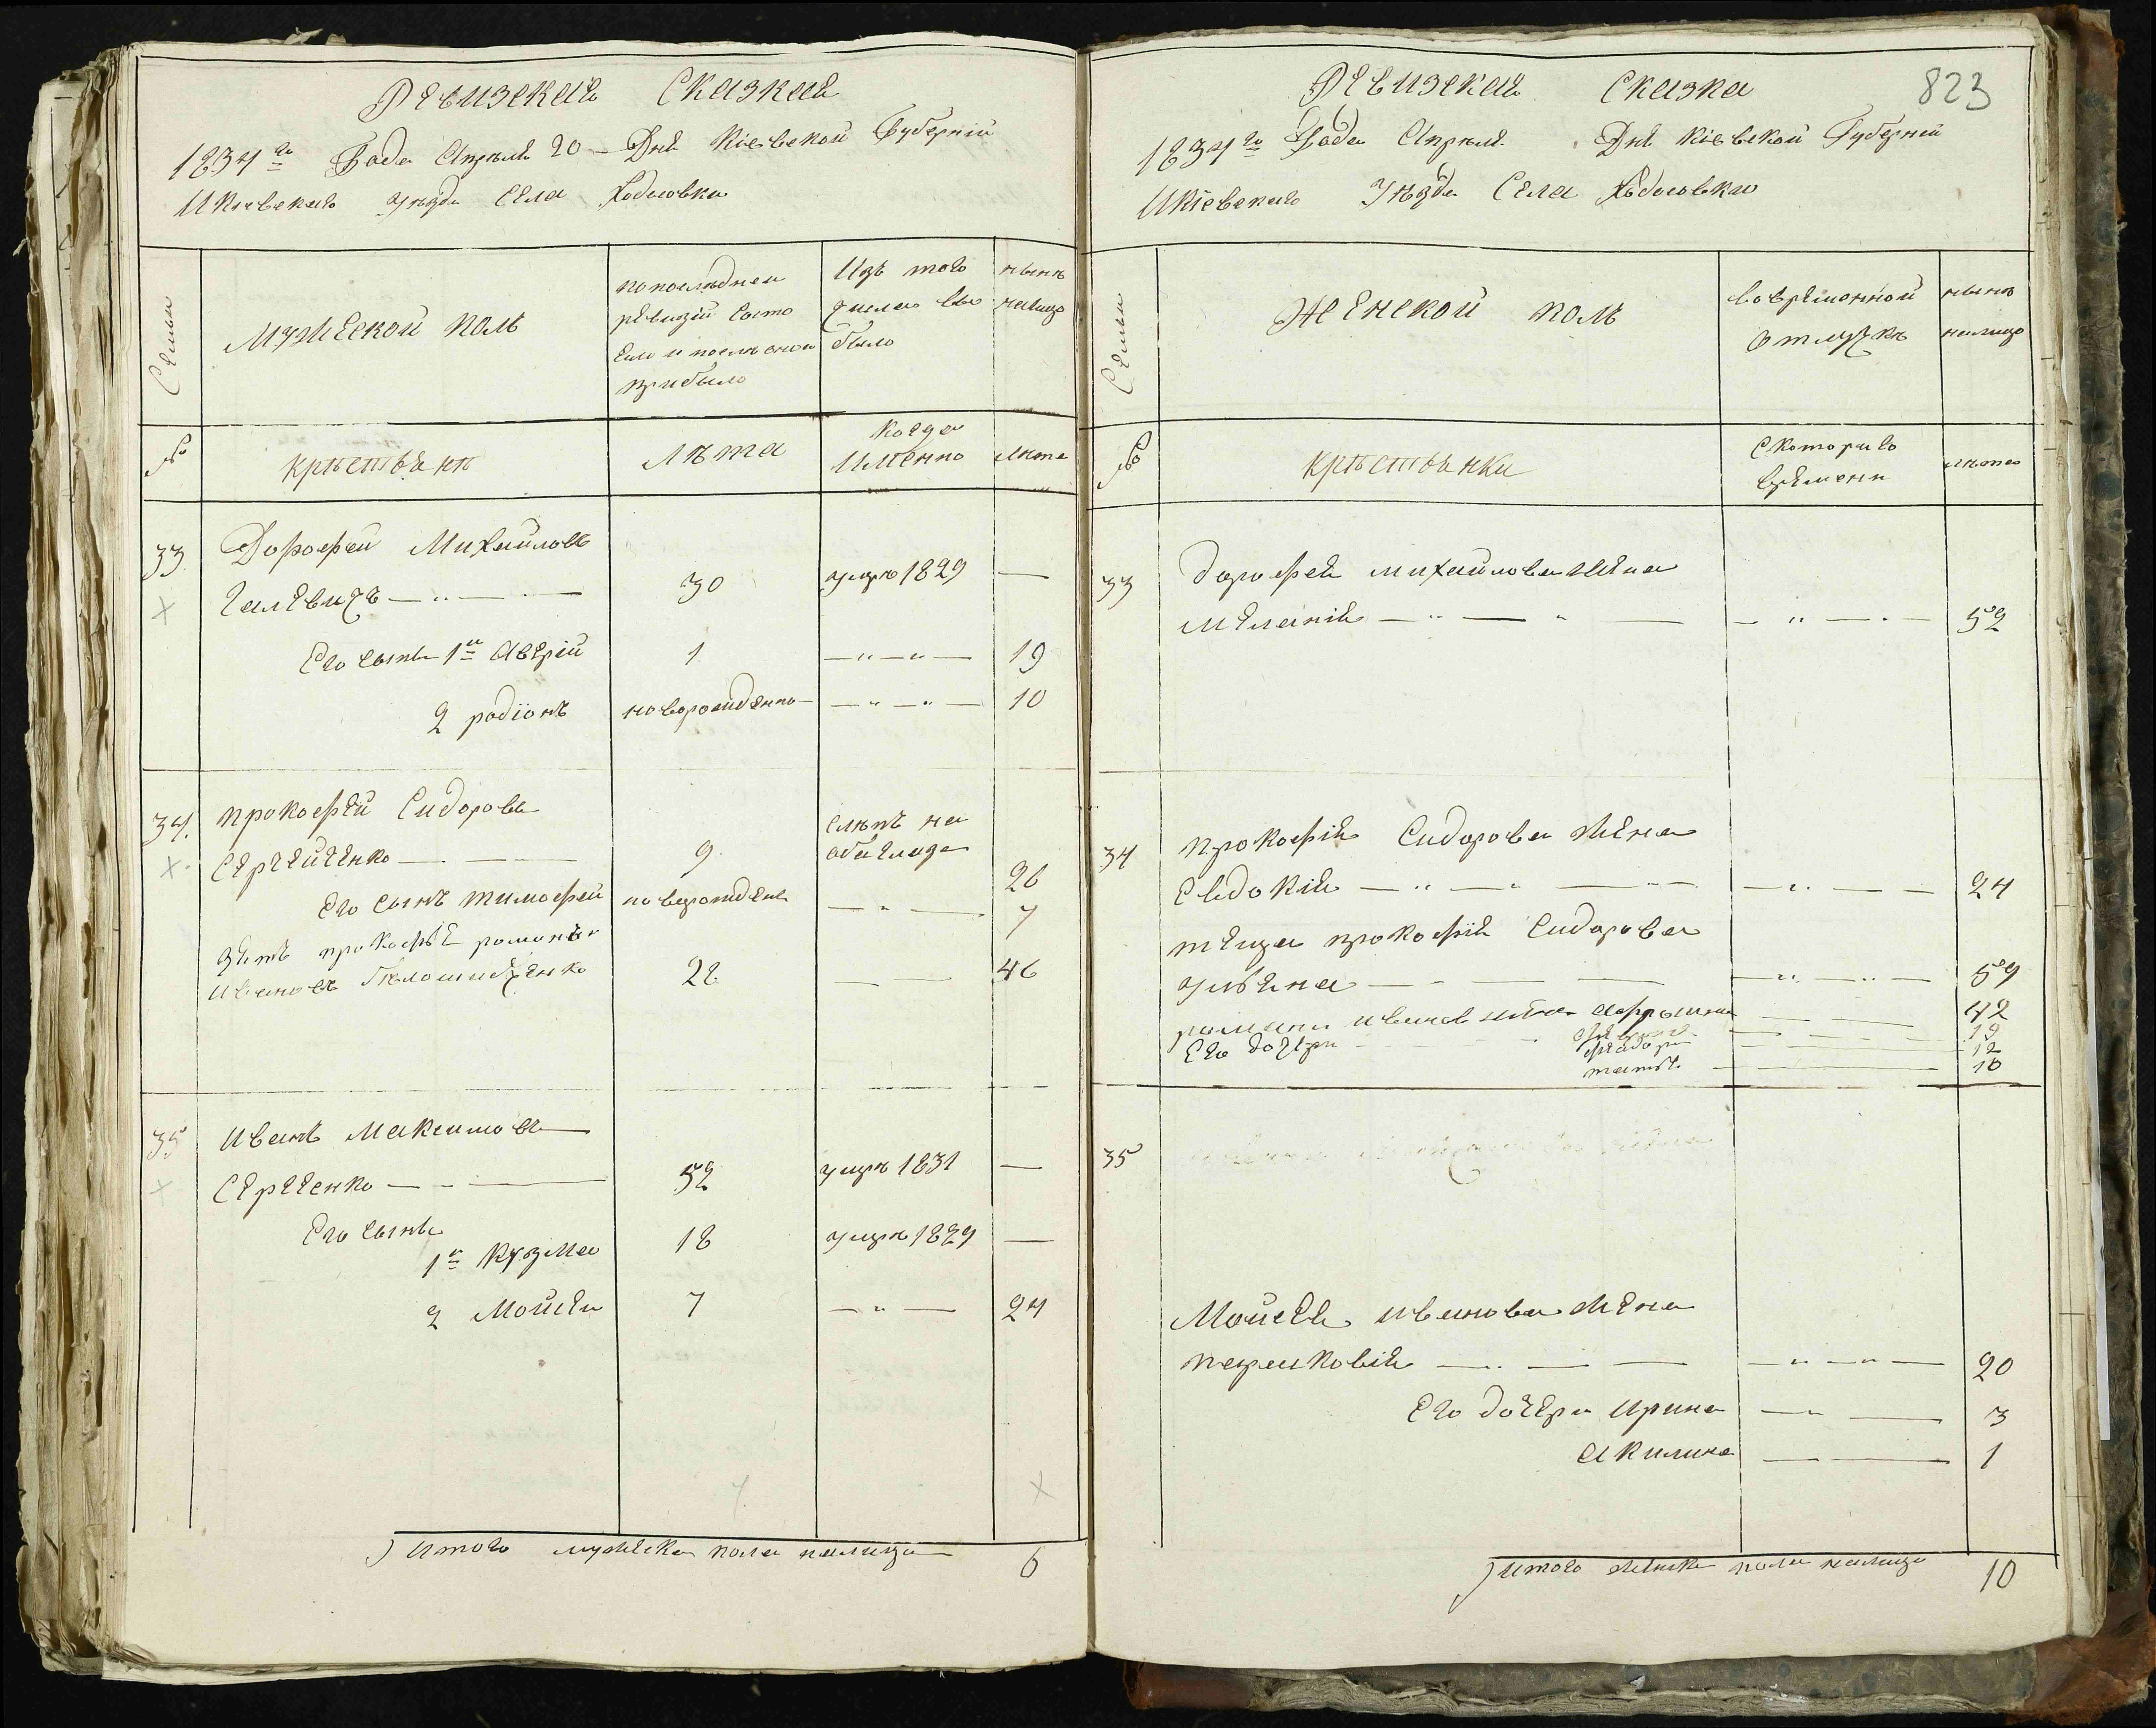 Ревизская Сказка
1834го Года Апреля 20 – Дня Кіевской Губерніи
И Кіевскаго уезда Села Ходосовки
Семьи
Мужеской полъ
по последней
ревизіи состо
яло и после оной
прибыло
Изъ того
числа вы
было
ныне
налицо
№
крестьяне
Лета
когда
именно
лета
33
Дорофей Михайловъ
Галевичъ
30
умре 1829
—
Его сынъ 1й Аверій
1
19
2 родіонъ
новорожденно
10
34.
прокофій Сидоровъ
Сергейченко
9
слепъ на
оба глаза
26
Его сынъ тимофей
новорожденъ
7
зять прокофія романъ
Ивановъ Белошицченко
28
46
35
иванъ Максимовъ
Сергеенко
52
умре 1831
—
Его сынъ
1й кузма
18
умре 1829
—
2 Мойсей
7
24
Итого мужеска пола налицо
6
823
Ревизская Сказка
1834го Года Апреля Дня Кіевской Губерніи
И Кіевскаго Уезда Села Ходосовки
Семьи
Женской полъ
во временной
отлучке
ныне
налицо
№
крестьянки
С котораго
времени
лета
33
дорофея михайлова жена
Меланія
52
34
прокофія Сидорова жена
Евдокія
24
теща прокофія Сидорова
ульяна
59
романа иванова жена Афросинія
42
Его дочери
19
феодора
12
татья
10
35
Мойсея иванова жена
парасковія
20
Его дочери ирина
3
акилина
1
Итого женска пола налицо
10